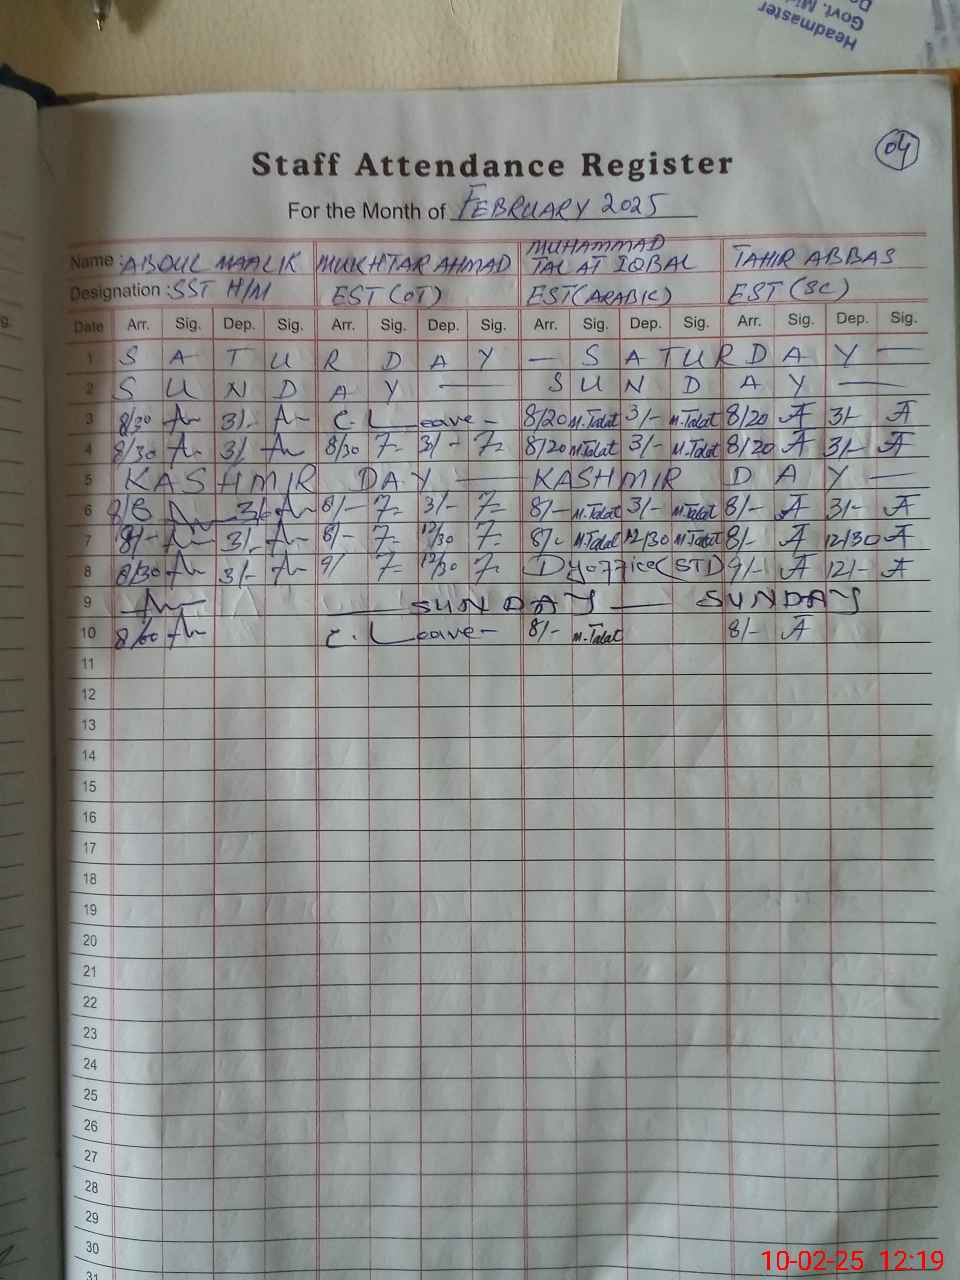 Headmaster
Govt. Mi
04
Staff Attendance Register
For the Month of FEBRUARY 2025
Name : ABDUL MAALIK MUKHTAR AHMAD MUHAMMAD TALAT IQBAL TAHIR ABBAS
Designation : SST H/M EST (OT) EST (ARABIC) EST (SC)
Date Arr. Sig. Dep. Sig. Arr. Sig. Dep. Sig. Arr. Sig. Dep. Sig. Arr. Sig. Dep. Sig.
1 SATURDAY — SATURDAY —
2 SUNDAY — SUNDAY —
3 8/30 3/- C. Leave - 8/20 M.Talat 3/- M.Talat 8/20 3/-
4 8/30 3/- 8/30 3/- 8/20 M.Talat 3/- M.Talat 8/20 3/-
5 KASHMIR DAY — KASHMIR DAY —
6 8/- 3/- 8/- M.Talat 3/- M.Talat 8/- 3/-
7 8/- 3/- 8/- 12/30 M.Talat 12/30 M.Talat 8/- 12/30
8 8/30 3/- 9/ 12/30 9/- 12/-
9 — SUNDAY — SUNDAY
10 C. Leave - 8/- M.Talat 8/-
11
12
13
14
15
16
17
18
19
20
21
22
23
24
25
26
27
28
29
30
31
10-02-25 12:19